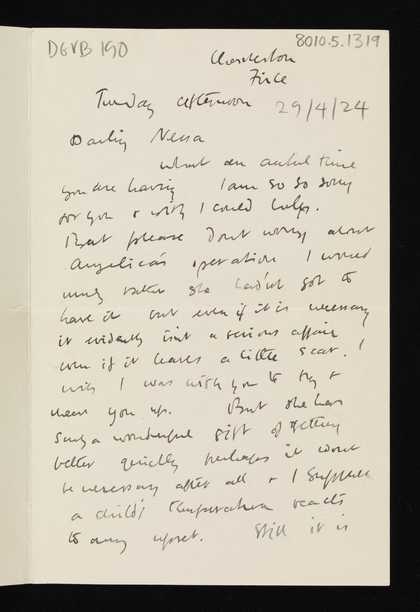 DGVB 190
8010.5.1319
Charleston
Firle
Tuesday afternoon 29/4/24
Darling Nessa
what an awful time
you are having I am so so sorry
for you & wish I could help.
But please Dont worry about
Angelica's operation I would
much rather she hadnt got to
have it but even if it is necessary
it evidently isnt a serious affair
even if it leaves a little scar. I
wish I was with you to try &
cheer you up. But she has
such a wonderful gift of getting
better quickly perhaps it wont
be necessary after all & I suppose
a child's temperature reacts
to any upset. Still it is